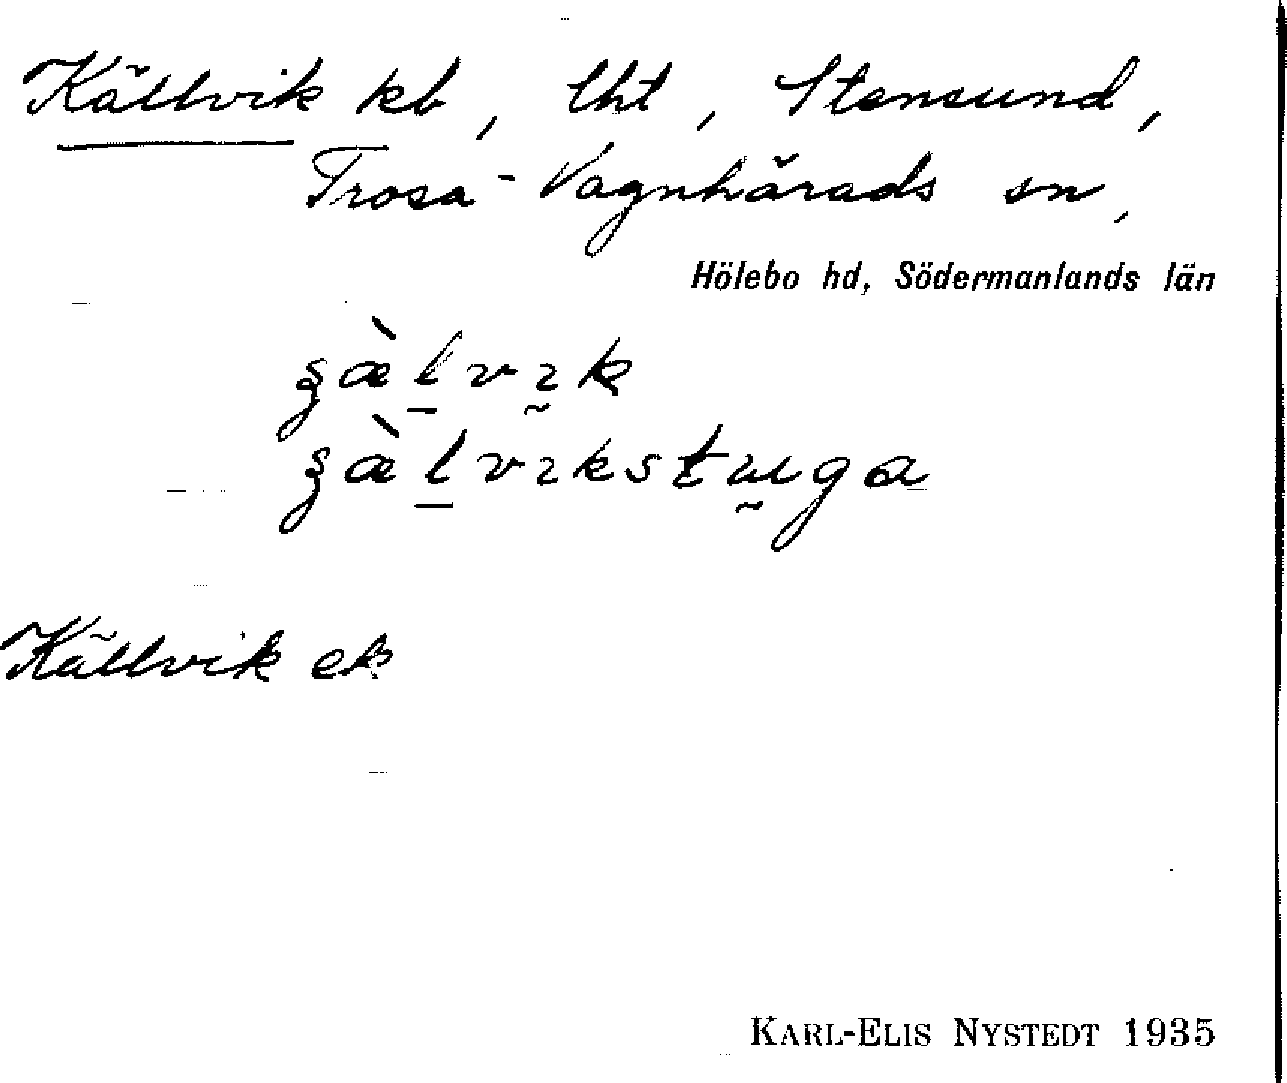 Källvik kb, lht, Stensund,
Trosa-Vagnhärads sn,
Hölebo hd, Södermanlands län
Källvik ek
KARL-ELIS NYSTEDT 1935